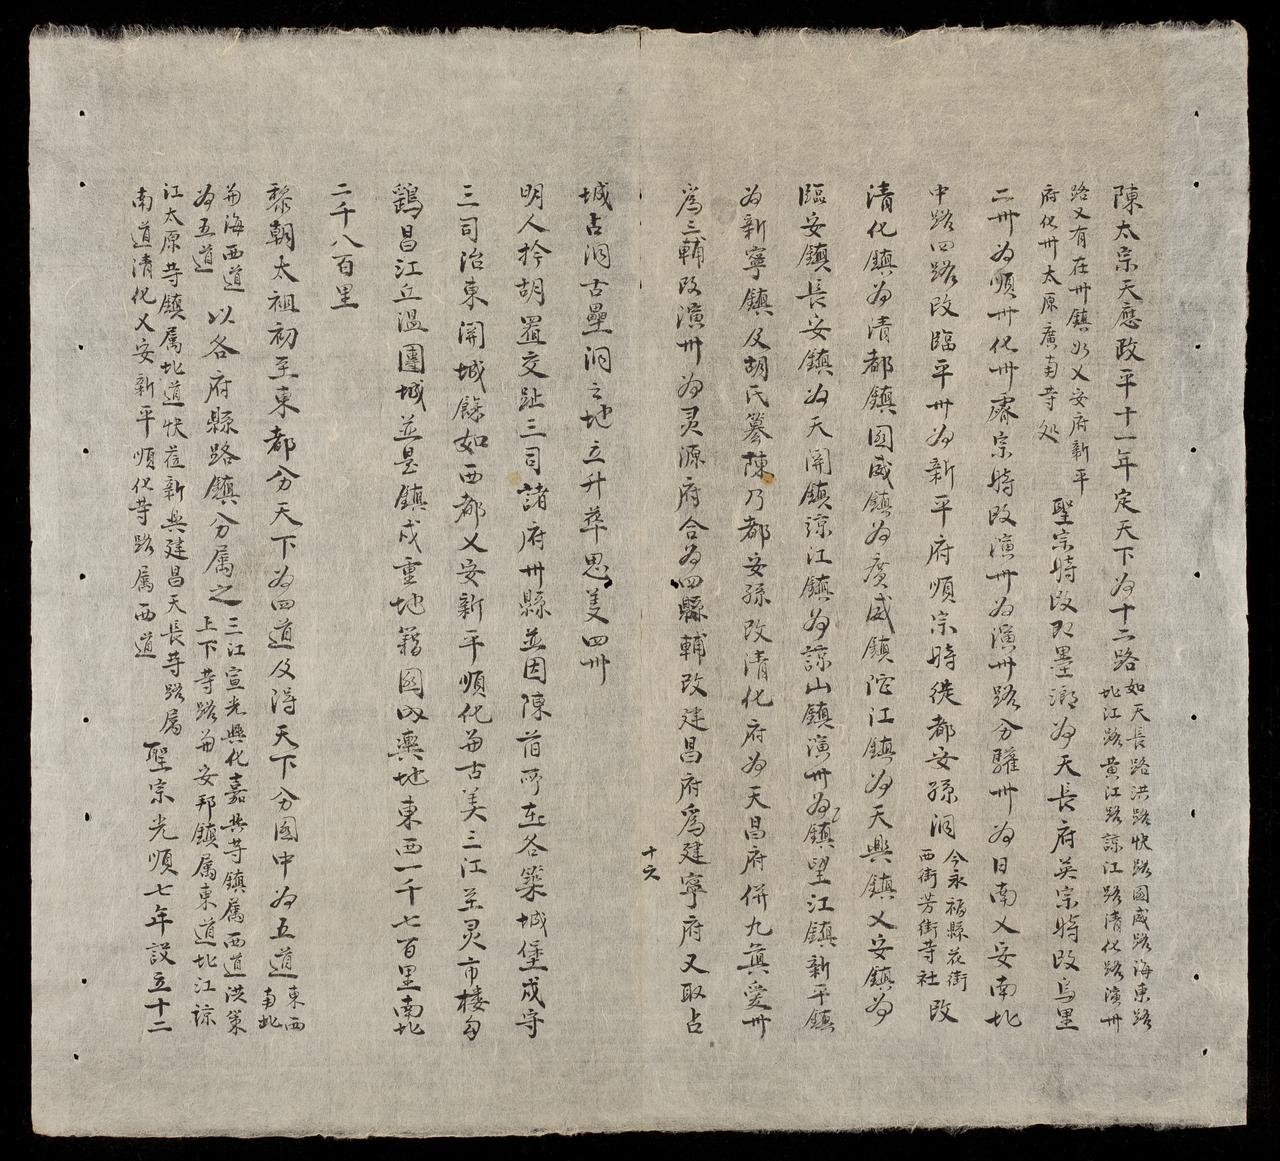 陳太宗天應政平十一年定天下为十二路如天長路洪路快路國威路海東路
北江路黄江路諒江路清化路演州
路又有在州鎮如乂安府新平
府化州太原廣南等処 聖宗時改即墨鄉为天長府英宗時改烏里
二州为順州化州睿宗時改演州为演州路分驩州为日南乂安南北
中路四路改臨平州为新平府順宗時徙都安孫洞今永福縣花街
西街芳街寺社 改
清化鎮为清都鎮國威鎮为廣威鎮沱江鎮为天興鎮乂安鎮为
臨安鎮長安鎮为天関鎮諒江鎮为諒山鎮演州为鎮望江鎮新平鎮
为新寧鎮及胡氏篡陳乃都安孫改清化府为天昌府併九真愛州
為三輔改演州为灵源府合为四縣輔改建昌府為建寧府又取占
十六
城占洞古壘洞之地立升華思義四州
明人擒胡置交趾三司諸府州縣並因陳旧所在各築城堡戍守
三司治東関城餘如西都乂安新平順化并古美三江至灵市橋
鷄昌江丘温團城並是鎮戍重地籍國内輿地東西一千七百里南北
二千八百里
黎朝太祖初至東都分天下为四道及得天下分國中为五道東西
南北
并海西道
为五道 以各府縣路鎮分属之三江宣光興化嘉興等鎮属西道洪策
上下等路并安邦鎮属東道北江諒
江太原等鎮属北道快莅新興建昌天長等路属
南道清化乂安新平順化等路属西道 聖宗光順七年設立十二